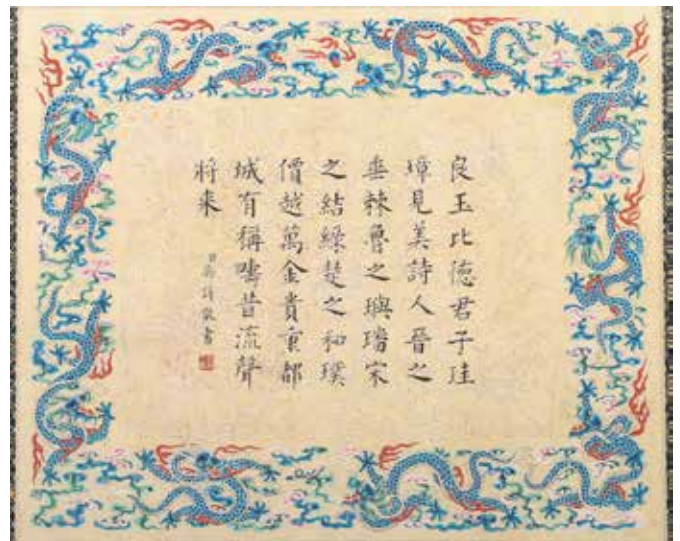 良玉比德君子珪
璋見美詩人晉之
垂棘魯之璵璠宋
之結綠楚之和璞
價越萬金貴重都
城有稱疇昔流聲
将来
書